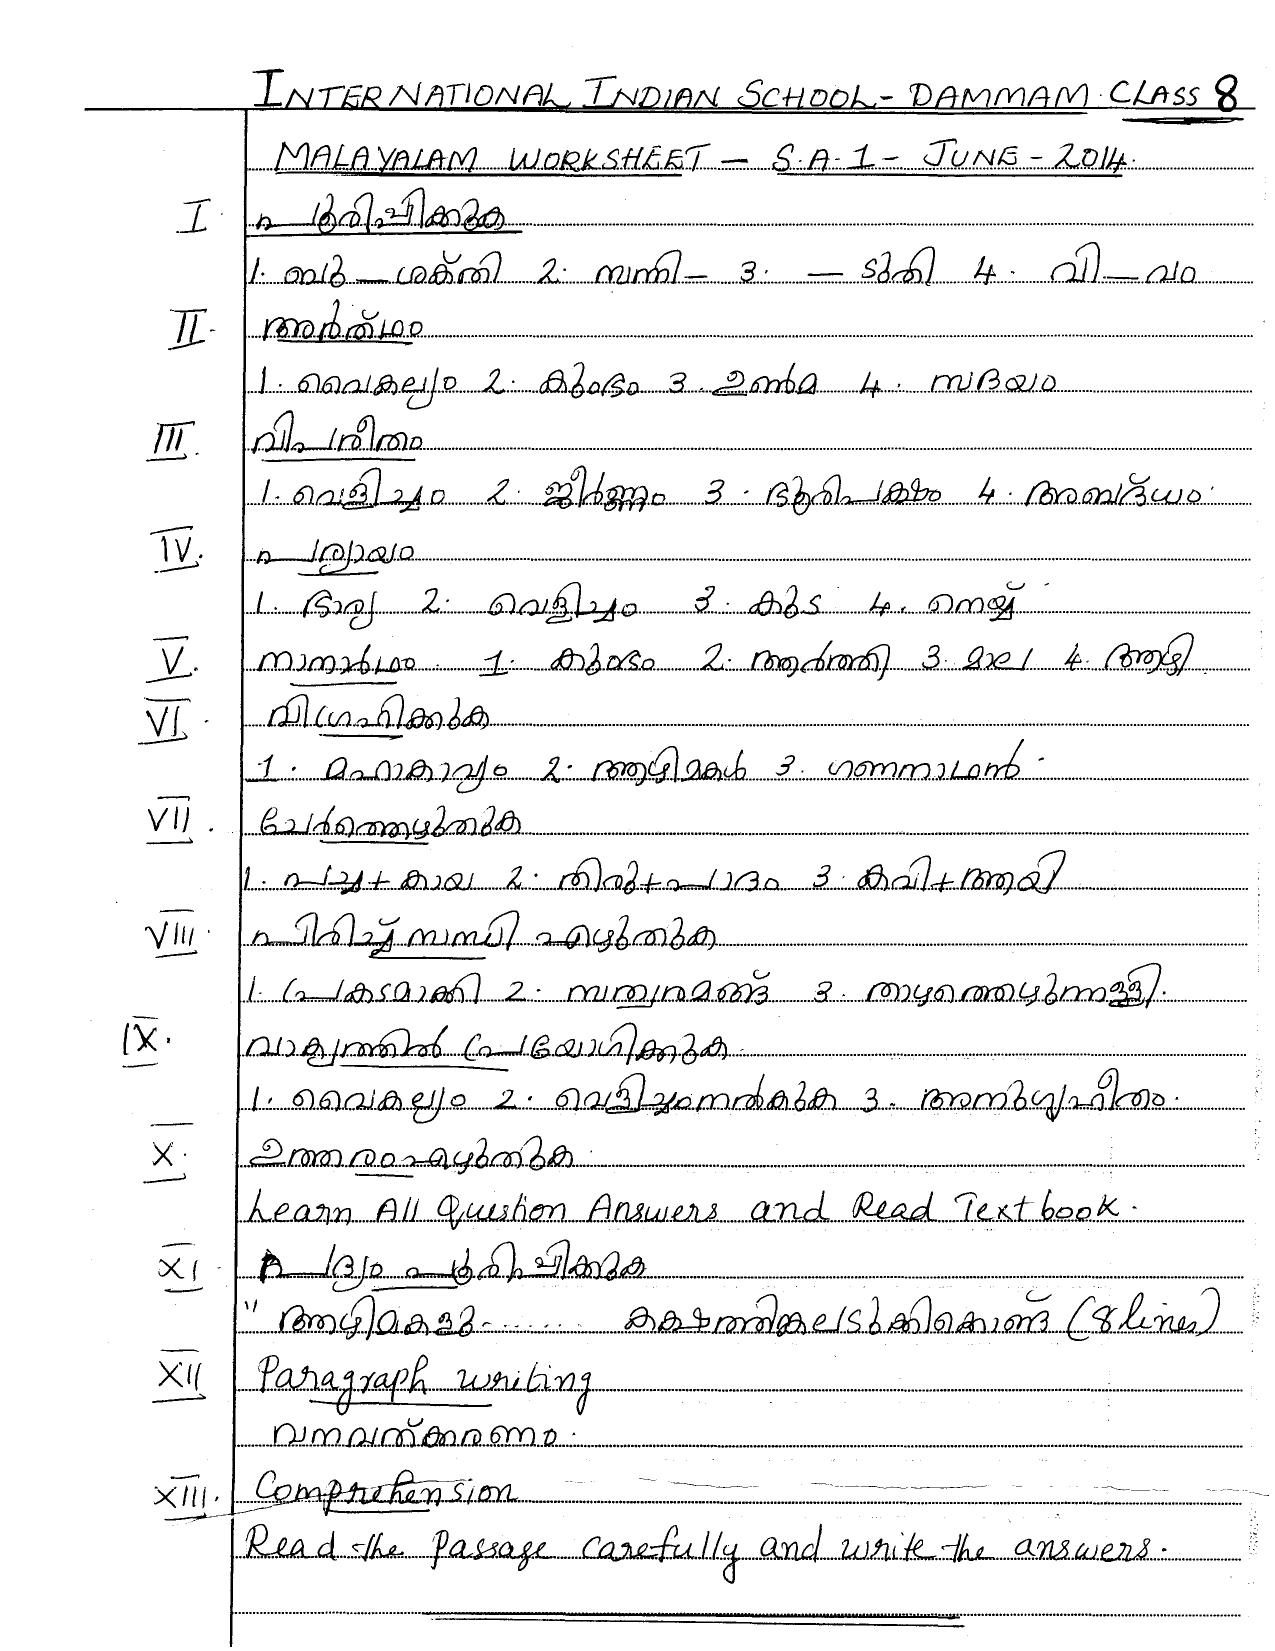 INTERNATIONAL INDIAN SCHOOL - DAMMAM. CLASS 8
MALAYALAM WORKSHEET - S.A.1 - JUNE - 2014.
I. പൂരിപ്പിക്കുക
1. ബു — ശക്തി 2. സന്തി — 3. — ടുതി 4. വി — വം
II. അർത്ഥം
1. വൈകല്യം 2. കുംഭം 3. ഉൺമ 4. സദയം
III. വിപരീതം
1. വെളിച്ചം 2. ജീർണ്ണം 3. ഭൂരിപക്ഷം 4. അബദ്ധം.
IV. പര്യായം
1. ഭാര്യ 2. വെളിച്ചം 3. കുട 4. നെയ്യ്
V. നാനാർഥം. 1. കുംഭം 2. ആർത്തി 3. മാല 4. ആഴി
VI. വിഗ്രഹിക്കുക
1. മഹാകാവ്യം 2. ആഴിമകൾ 3. ഗണനാഥൻ.
VII. ചേർത്തെഴുതുക
1. പച്ച + കായ 2. തിരു + പാദം 3. കവി + ആയി
VIII. പിരിച്ച് സന്ധി എഴുതുക
1. പ്രകടമാക്കി 2. സത്വരമങ്ങ് 3. താഴത്തെഴുന്നള്ളി.
IX. വാക്യത്തിൽ പ്രയോഗിക്കുക.
1. വൈകല്യം 2. വെളിച്ചംനൽകുക 3. അനുഗൃഹീതം.
X. ഉത്തരംഎഴുതുക.
Learn All Question Answers and Read Textbook.
XI പദ്യം പൂരിപ്പിക്കുക
"ആഴിമകളു........ കക്ഷത്തിങ്കലിടുക്കിക്കൊണ്ട് (8 lines)
XII Paragraph writing
വനവത്ക്കരണം.
XIII. Comprehension
Read the Passage carefully and write the answers.